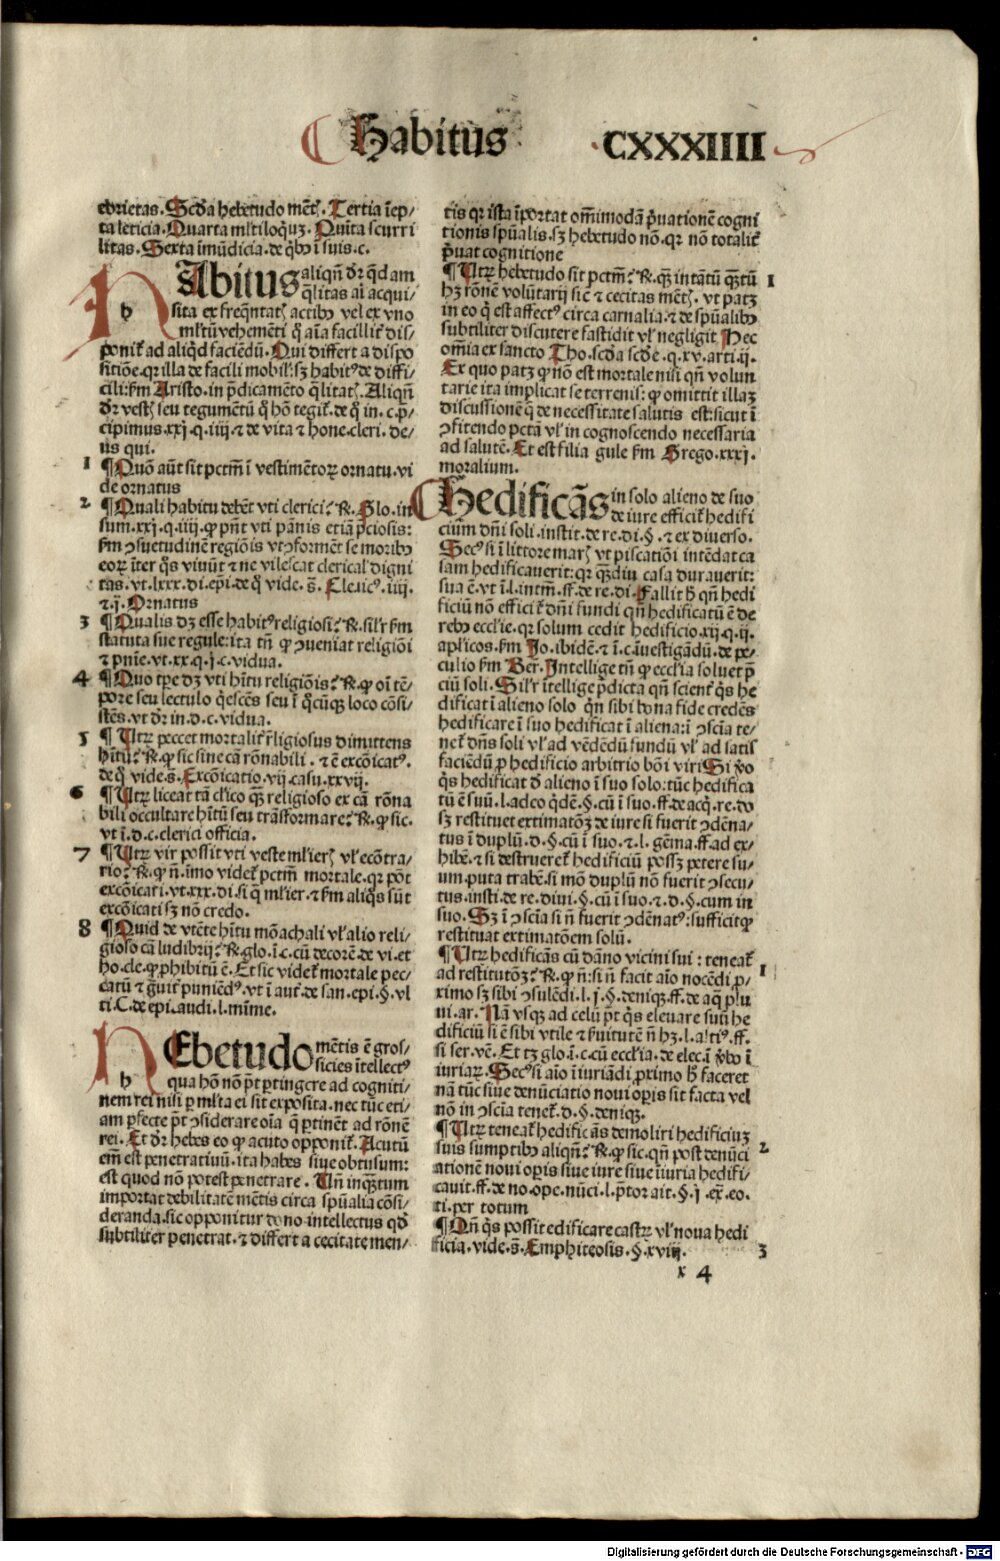 Habitus CXXXIIII
ebrietas. Scd̃a hebetudo mẽt. Tertia ĩep/
ta leticia. Quarta ml̃tiloq̃uʒ. Quĩta scurri
litas. Sexta ĩmũdicia. de q̃bꝰ ĩ suis. c.
HAbitus aliqñ dr̃ qd̃am
q̃litas aĩ acqui/
sita ex freq̃ntatꝭ actibꝰ vel ex vno
ml̃tũ vehemẽti q̃ aĩa facillit̃ dis/
ponit̃ ad aliq̃d faciẽdũ. Qui differt a dispo
sitiõe. qr illa de facili mobilꝭ: sʒ habitꝰ de diffi/
cili: fm Aristo. in p̃dicamẽto q̃litatꝭ. Aliqñ
dr̃ vestꝭ seu tegumẽtũ q̃ hõ tegit̃. de q̃ in. c. p̃/
cipimus. xxj. q. iiij. ⁊ de vita ⁊ hone. cleri. de/
us qui.
1 ¶ Quõ aũt sit pctm̃ ĩ vestimẽtoꝝ ornatu. vi
de ornatus
2 ¶ Quali habitu debẽt vti clerici? R. Glo. in
sum. xxj. q. iiij. ꝙ pñt vti pãnis etiã p̃ciosis:
fm ꝯsuetudinẽ regiõis vt ꝯformẽt se moribꝰ
eoꝝ ĩter q̃s viuũt ⁊ ne vilescat clericalꝭ digni
tas. vt. lxxx. di. epĩ. de q̃ vide. s̃. Clericꝰ. iiij.
⁊. ij. Ornatus
3 ¶ Qualis dʒ esse habitꝰ religiosi? R. sil̃r fm
statuta sue regule: ita tñ ꝙ ꝯueniat religiõi
⁊ pñie. vt. xx. q. j. c. vidua.
4 ¶ Quo tp̃e dʒ vti hĩtu religiõis? R. ꝙ oĩ tẽ/
pore seu lectulo q̃escẽs seu ĩ q̃cũqʒ loco cõsi/
stẽs. vt dr̃ in. d. c. vidua.
5 ¶ Vtꝝ peccet mortalit̃ r̃ligiosus dimittens
hĩtũ? R. ꝙ sic sine cã rõnabili. ⁊ ẽ excõicatꝰ.
de q̃ vide. s̃. Excõicatio. vij. casu. xxvij.
6 ¶ Vtꝝ liceat tã cl̃ico qʒ religioso ex cã rõna
bili occultare hĩtũ seu trãsformare? R. ꝙ sic.
vt ĩ. d. c. clerici officia.
7 ¶ Vtꝝ vir possit vti veste ml̃ierꝭ vl̃ ecõtra/
rio? R. ꝙ ñ. imo videt̃ pctm̃ mortale. qr põt
excõicari. vt. xxx. di. si q̃ ml̃ier. ⁊ fm aliq̃s sũt
excõicati sʒ nõ credo.
8 ¶ Quid de vtẽte hĩtu mõachali vl̃ alio reli/
gioso cã ludibrij? R. glo. ĩ. c. cũ decorẽ. de vi. et
ho. cle. ꝙ p̃hibitũ ẽ. Et sic videt̃ mortale pec/
catũ ⁊ g̃uit̃ puniẽdꝰ. vt ĩ aut̃. de san. epi. §. vl
ti. C. de epi. audi. l. mĩme.
HEbetudo mẽtis ẽ gros/
sicies ĩtellectꝰ
qua hõ nõ p̃t ptingere ad cogniti/
nem rei nisi p ml̃ta ei sit exposita. nec tũc eti/
am pfecte p̃t ꝯsiderare oĩa q̃ ptinẽt ad rõnẽ
rei. Et dr̃ hebes eo ꝙ acuto opponit̃. Acutũ
em̃ est penetratiuũ. ita habes siue obtusum:
est quod nõ potest penetrare. Vñ inqʒtum
importat debilitatẽ mẽtis circa sp̃ualia cõsi/
deranda. sic opponitur dono intellectus qd̃
subtiliter penetrat. ⁊ differt a cecitate men/
tis qr ista ĩportat om̃imodã p̃uationẽ cogni
tionis sp̃ualis. sʒ hebetudo nõ. qr nõ totalit̃
p̃uat cognitione
¶ Vtꝝ hebetudo sit pctm̃? R. qʒ intãtũ qʒtũ 1
hʒ rõnẽ volũtarij sic̃ ⁊ cecitas mẽtꝭ. vt patʒ
in eo q̃ est affectꝰ circa carnalia. ⁊ de sp̃ualibꝰ
subtiliter discutere fastidit vl̃ negligit Hec
om̃ia ex sancto Tho. scd̃a scd̃e. q. xv. arti. ij.
Ex quo patʒ ꝙ nõ est mortale nisi qñ volun
tarie ita implicat se terrenis: ꝙ omittit illaʒ
discussionẽ q̃ de necessitate salutis est: sicut ĩ
ꝯfitendo pctã vl̃ in cognoscendo necessaria
ad salutẽ. Et est filia gule fm Grego. xxxj.
moralium.
Hedificãs in solo alieno de suo
de iure efficit̃ hedifi
cium dñi soli. instit. de re. di. §. ⁊ ex diuerso.
Secꝰ si ĩ littore marꝭ vt piscatiõi intẽdat ca
sam hedificauerit: qr qʒdiu casa durauerit:
sua ẽ. vt ĩ. l. intm̃. ff. de re. di. Fallit h̃ qñ hedi
ficiũ nõ effici t̃ dñi fundi qñ hedificatũ ẽ de
rebꝰ eccl̃ie. qr solum cedit hedificio. xij. q. ij.
apl̃icos. fm Jo. ibidẽ. ⁊ ĩ. c. ĩuestigãdũ. de pe/
culio fm Ber. Intellige tñ ꝙ eccl̃ia soluet p̃
ciũ soli. Sil̃r ĩtellige p̃dicta qñ scient̃ q̃s he
dificat ĩ alieno solo qñ sibi bona fide credẽs
hedificare ĩ suo hedificat ĩ aliena: ĩ ꝯscĩa te/
net̃ dñs soli vl̃ ad vẽdẽdũ fundũ vl̃ ad satis
faciẽdũ p hedificio arbitrio bõi viri. Si ꝟo
q̃s hedificat d̃ alieno ĩ suo solo: tũc hedifica
tũ ẽ suũ. l. adeo q̃dẽ. §. cũ ĩ suo. ff. de acq̃. re. do
sʒ restituet extimatõʒ de iure si fuerit ꝯdẽna/
tus ĩ duplũ. d. §. cũ ĩ suo. ⁊. l. gẽma. ff. ad ex/
hibẽ. ⁊ si destrueret̃ hedificiũ possʒ petere su/
um. puta trabẽ. si mõ duplũ nõ fuerit ꝯsecu/
tus. insti. de re. diui. §. cũ ĩ suo. ⁊. d. §. cum in
suo. Sʒ ĩ ꝯscĩa si ñ fuerit ꝯdẽnatꝰ: sufficit ꝙ
restituat extimatõem solũ.
¶ Vtꝝ hedificãs cũ dãno vicini sui: teneat̃
ad restitutõʒ? R. ꝙ ñ: si ñ facit aĩo nocẽdi p̃/ 1
ximo sʒ sibi ꝯsulẽdi. l. j. §. deniqʒ. ff. de aq̃ plu
ui. ar. Nã vsqʒ ad celũ p̃t q̃s eleuare suũ he
dificiũ si ẽ sibi vtile ⁊ ẜuitutẽ ñ hʒ. l. altiꝰ. ff.
si ser. vẽ. Et tʒ glo. ĩ. c. cũ eccl̃ia. de elec. ĩ ꝟbo ĩ
iuriaꝝ. Secꝰ si aĩo ĩiuriãdi p̃ximo h̃ faceret
nã tũc siue denũciatio noui op̃is sit facta vel
nõ in ꝯscĩa tenet̃. d. §. deniqʒ.
¶ Vtꝝ teneat̃ hedificãs demoliri hedificiuʒ
suis sumptibꝰ aliqñ? R. ꝙ sic. qñ post denũci 2
ationẽ noui op̃is siue iure siue ĩiuria hedifi/
cauit. ff. de no. ope. nũci. l. p̃tor ait. §. j. ex̃. eo.
ti. per totum
¶ Qñ q̃s possit edificare castꝝ vl̃ noua hedi
ficia. vide. s̃. Emphiteosis. §. xviij. 3
x 4
Digitalisierung gefördert durch die Deutsche Forschungsgemeinschaft - DFG